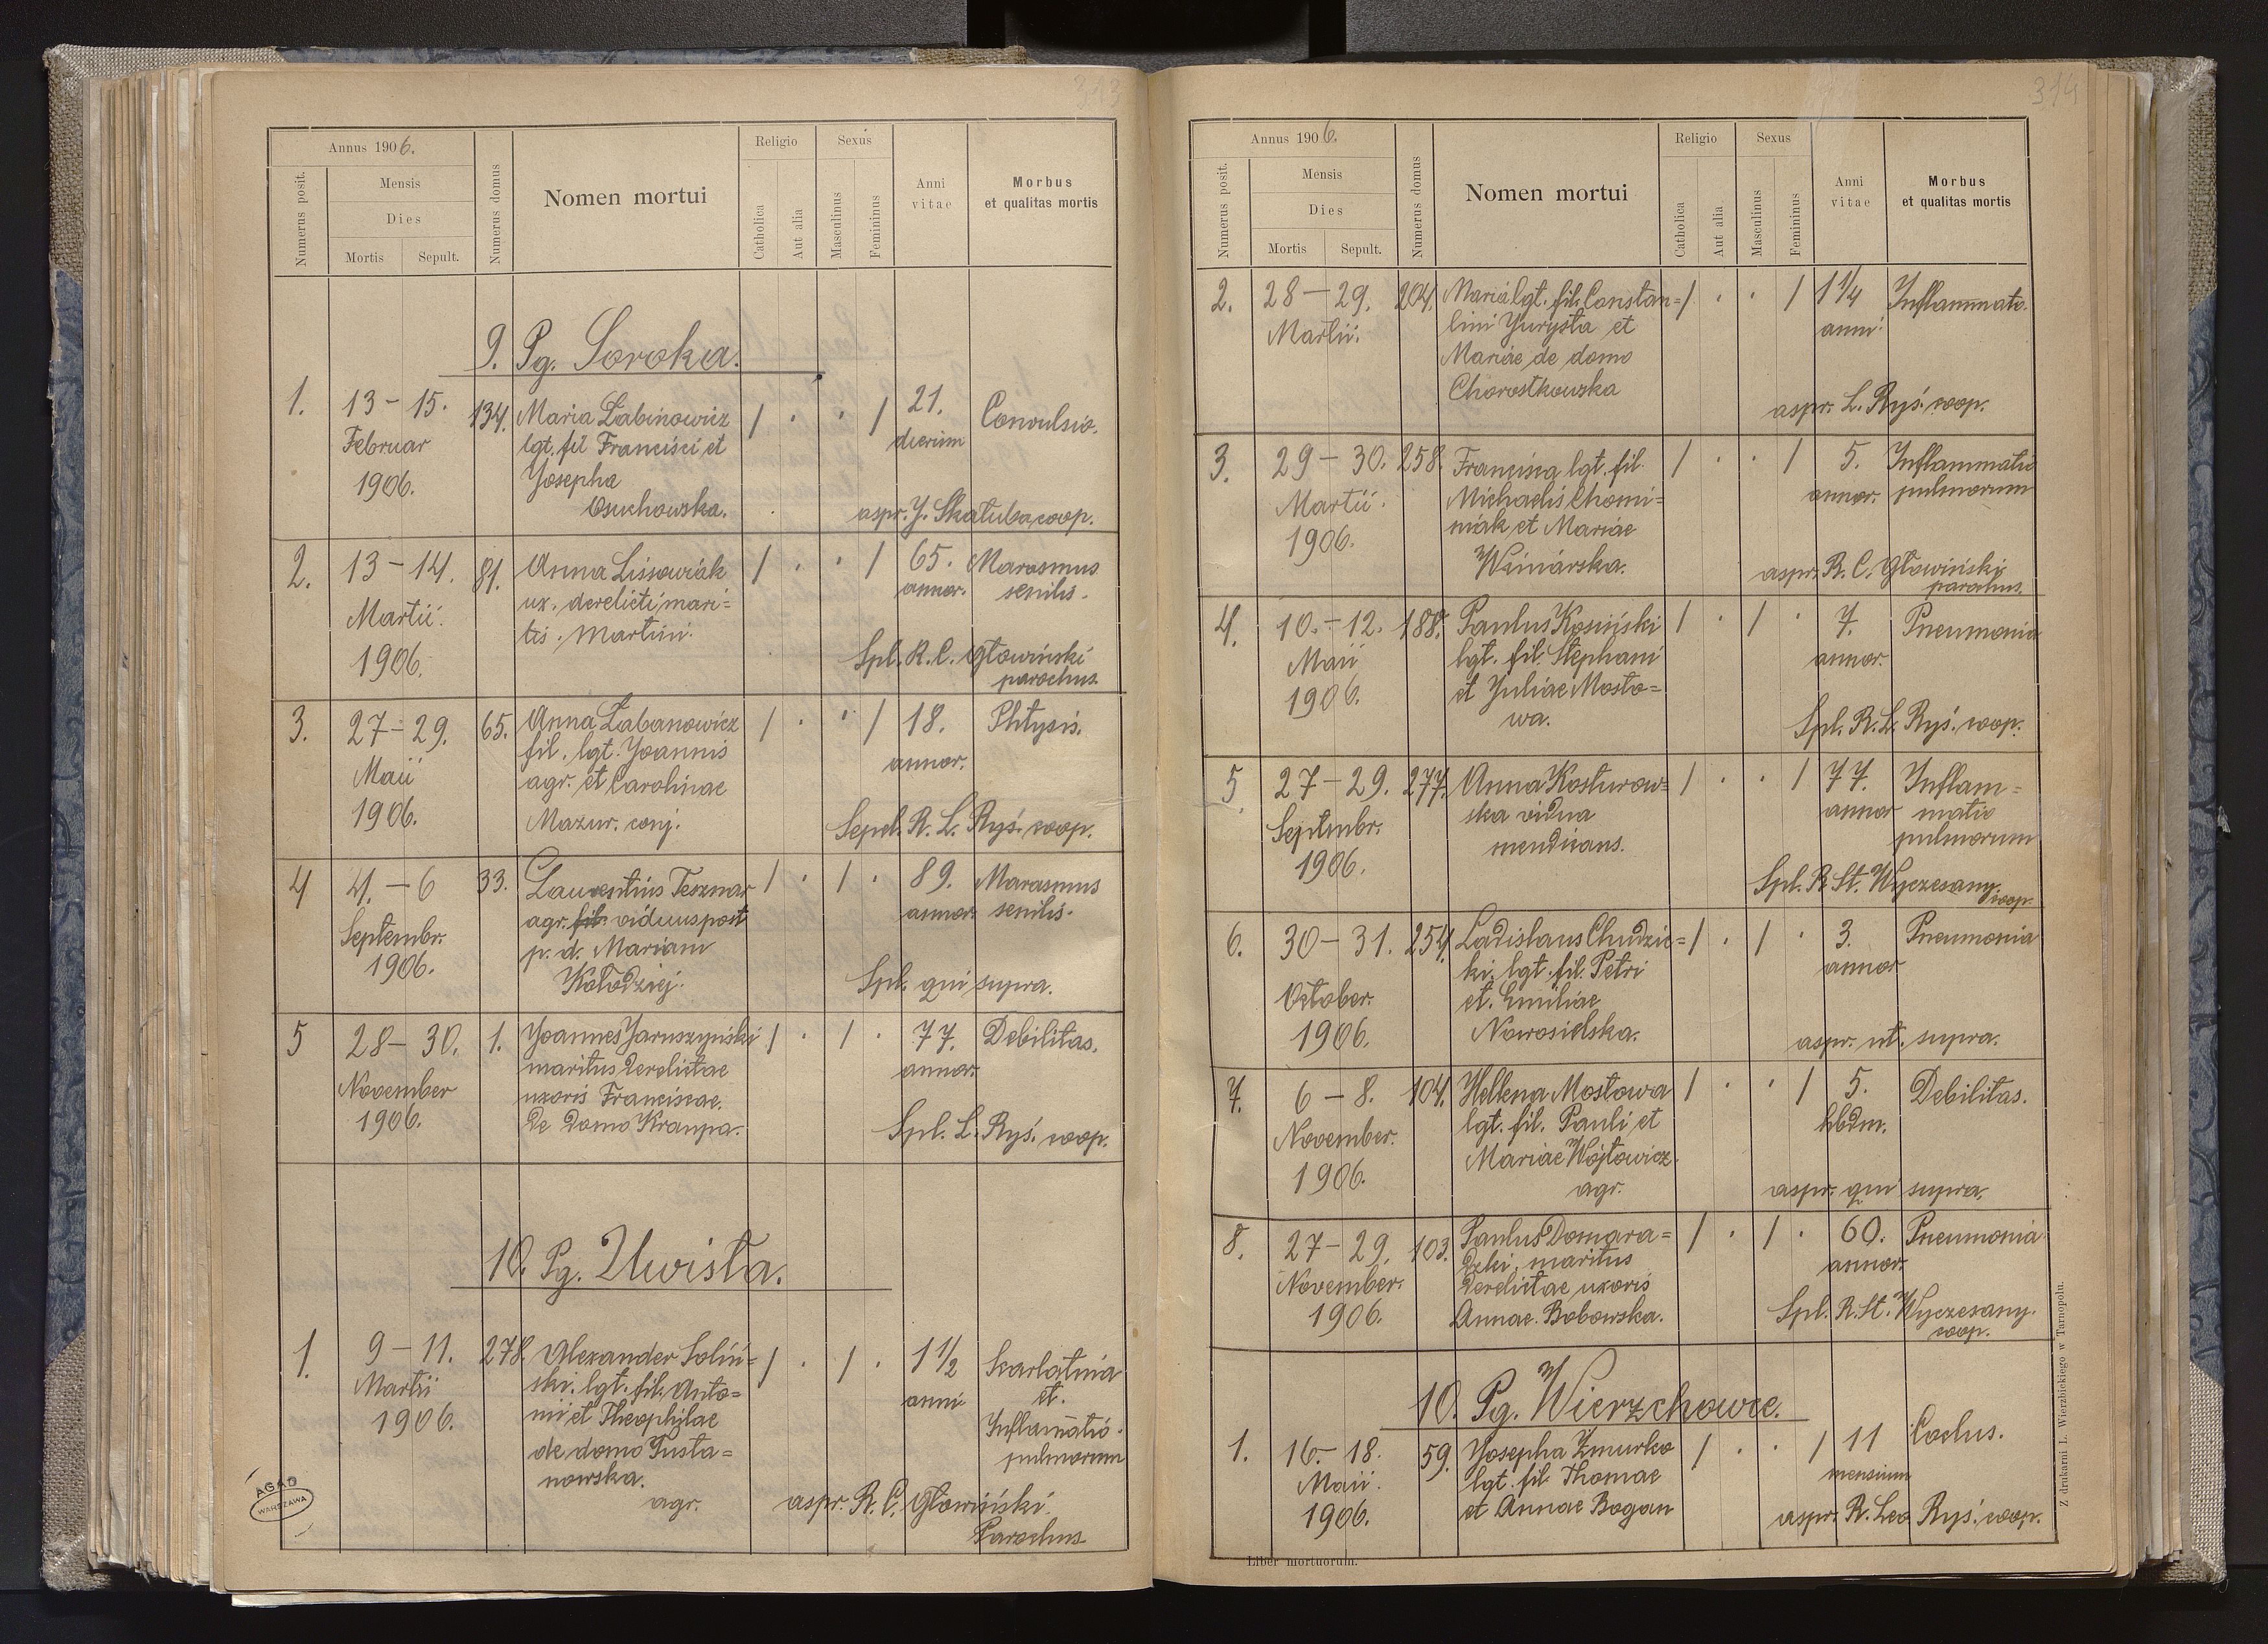 313
Annus 1906.
Numerus posit.
Mensis
Dies
Mortis
Sepult.
Numerus domus
Nomen mortui
Religio
Catholica
Aut alia
Sexus
Masculinus
Femininus
Anni
vitae
Morbus
et qualitas mortis
9. Pg. Soroka.
1. 13 – 15. 134. Maria Łabinowicz / . . / 21. Convulsio.
Februar lgt. fil Francisci et dierum
1906. Josepha
Osuchowska. aspr. J. Skatulsa coop.
2. 13 – 14. 81. Anna Lissowiák / . . / 65. Marasmus
Martii. ux. derelicti mari= annor. senilis.
1906. tis. Martini.
Spl. R. C. Głowiński
parochus
3. 27 – 29. 65. Anna Łabanowicz / . . / 18. Phtysis.
Maii fil. lgt. Joannis annor.
1906. agr. et Carolinae
Mazur. conj. Sepel. R. L. Ryś. coop.
4 4. – 6 33. Laurentius Tesznar / . / . 89. Marasmus
Septembr. agr. fil. viduus post annor. senilis.
1906. p. d. Mariam
Kołodziej. Spl. qui supra.
5 28 – 30. 1. Joannes Jaruszyński / . / . 77. Debilitas.
November maritus derelictae annor.
1906. uxoris Franciscae.
de domo Kraupa. Spl. L. Ryś. coop.
10. Pg. Uwista.
1. 9 – 11. 278. Alexander Soliń= / . / . 1 1/2 Skarlatina
Martii ski. lgt. fil. Anto= anni et.
1906. ni et Theophilae Inflammatio.
de domo Gusta= pulmorum
nowska.
agr. aspr. R. C. Głowiński.
Parochus
AGAD
WARSZAWA
314
Annus 1906.
Numerus posit.
Mensis
Dies
Mortis
Sepult.
Numerus domus
Nomen mortui
Religio
Catholica
Aut alia
Sexus
Masculinus
Femininus
Anni
vitae
Morbus
et qualitas mortis
2. 28 – 29. 204. Maria lgt. fil. Constan= / . . / 1 1/4 Inflammatio.
Martii. tini Jurysta et anni.
Mariae de domo
Chorostkowska
aspr. L. Ryś. coop.
3. 29 – 30. 258. Francisca lgt. fil. / . . / 5. Inflammatio
Martii. Michaelis Chomi= annor. pulmorum
1906. niak et Mariae
Winiárska. aspr. R. C. Głowiński
parochus.
4. 10. – 12. 188. Paulus Kosiński / . / . 7. Pneumonia
Maii lgt. fil. Stephani annor.
1906. et Juliae Mosto=
wa. Spl. R. L. Ryś. coop.
5. 27 – 29. 277. Anna Kosturow= / . . / 77. Inflam=
Septmbr. ska vidua annor matio
1906. mendicans. pulmorum
Spl. R. St. Wyczesany.
coop.
6. 30 – 31. 254. Ladislaus Chudzic= / . / . 3. Pneumonia
October. ki. lgt. fil. Petri annor
1906. et. Emiliae
Nowosielska. aspr. ut. supra.
7. 6 – 8. 104. Hellena Mostowa / . . / 5. Debilitas.
November. lgt. fil. Pauli et hbdm.
1906. Mariae Wójtowicz.
agr. aspr. qui supra.
8. 27 – 29. 103. Paulus Domara= / . / . 60. Pneumonia
November. dzki. maritus annor.
1906. derelictae uxoris
Annae. Bobowska. Spl. R. St. Wyczesany.
coop.
10. Pg. Wierzchowce.
1. 16. – 18. 59. Josepha Zmurko / . . / 11 Coctus.
Maii. lgt. fil. Thomae mensium
1906. et Annae Bogan aspr. R. Leo Ryś. coop.
Liber mortuorum.
Z drukarni L. Wierzbickiego w Tarnopolu.